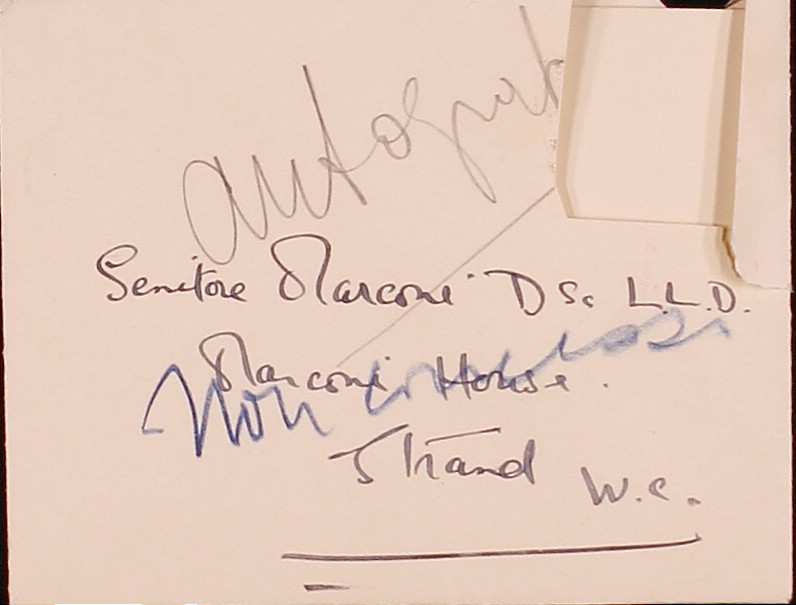 autograph
Senitore Marconi D Sc L.L.D.
Marconi House.
Non
Strand
W.C.